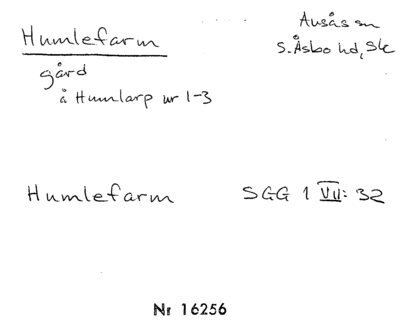 Humlefarm
Ausås sn
S. Åsbo hd, Sk
gård
å Humlarp nr 1-3
Humlefarm SGG 1 VII: 32
Nr 16256